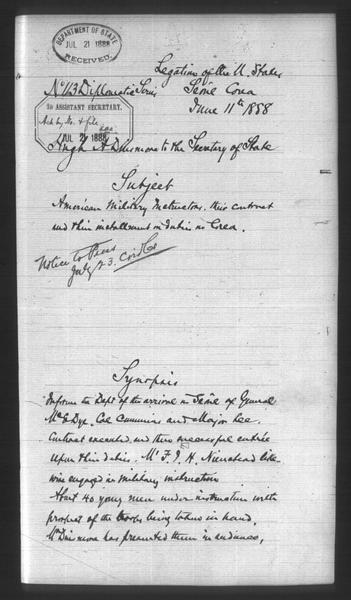 DEPARTMENT OF STATE
JUL 21 1888
RECEIVED
Legation of the U. States
Nº 113 Diplomatic Series
Seoul Corea
June 11th 1888
2D ASSISTANT SECRETARY.
Ack by No. & file
JUL 21 1888
Hugh A Dinsmore to the Secretary of State
Subject
American Military Instructors, their contract
and their installment in duties in Corea.
Notice to Press
July 23.
Synopsis
Informs the Dept of the arrival in Seoul of General
McE Dye, Col Cummins and Major Lee.
Contract executed and their successful entrée
upon their duties. Mr F. J. H. Nienstead like-
wise engaged in military instruction
About 40 young men under instruction with
prospect of the troops being taken in hand.
Mr Dinsmore has presented them in audience,